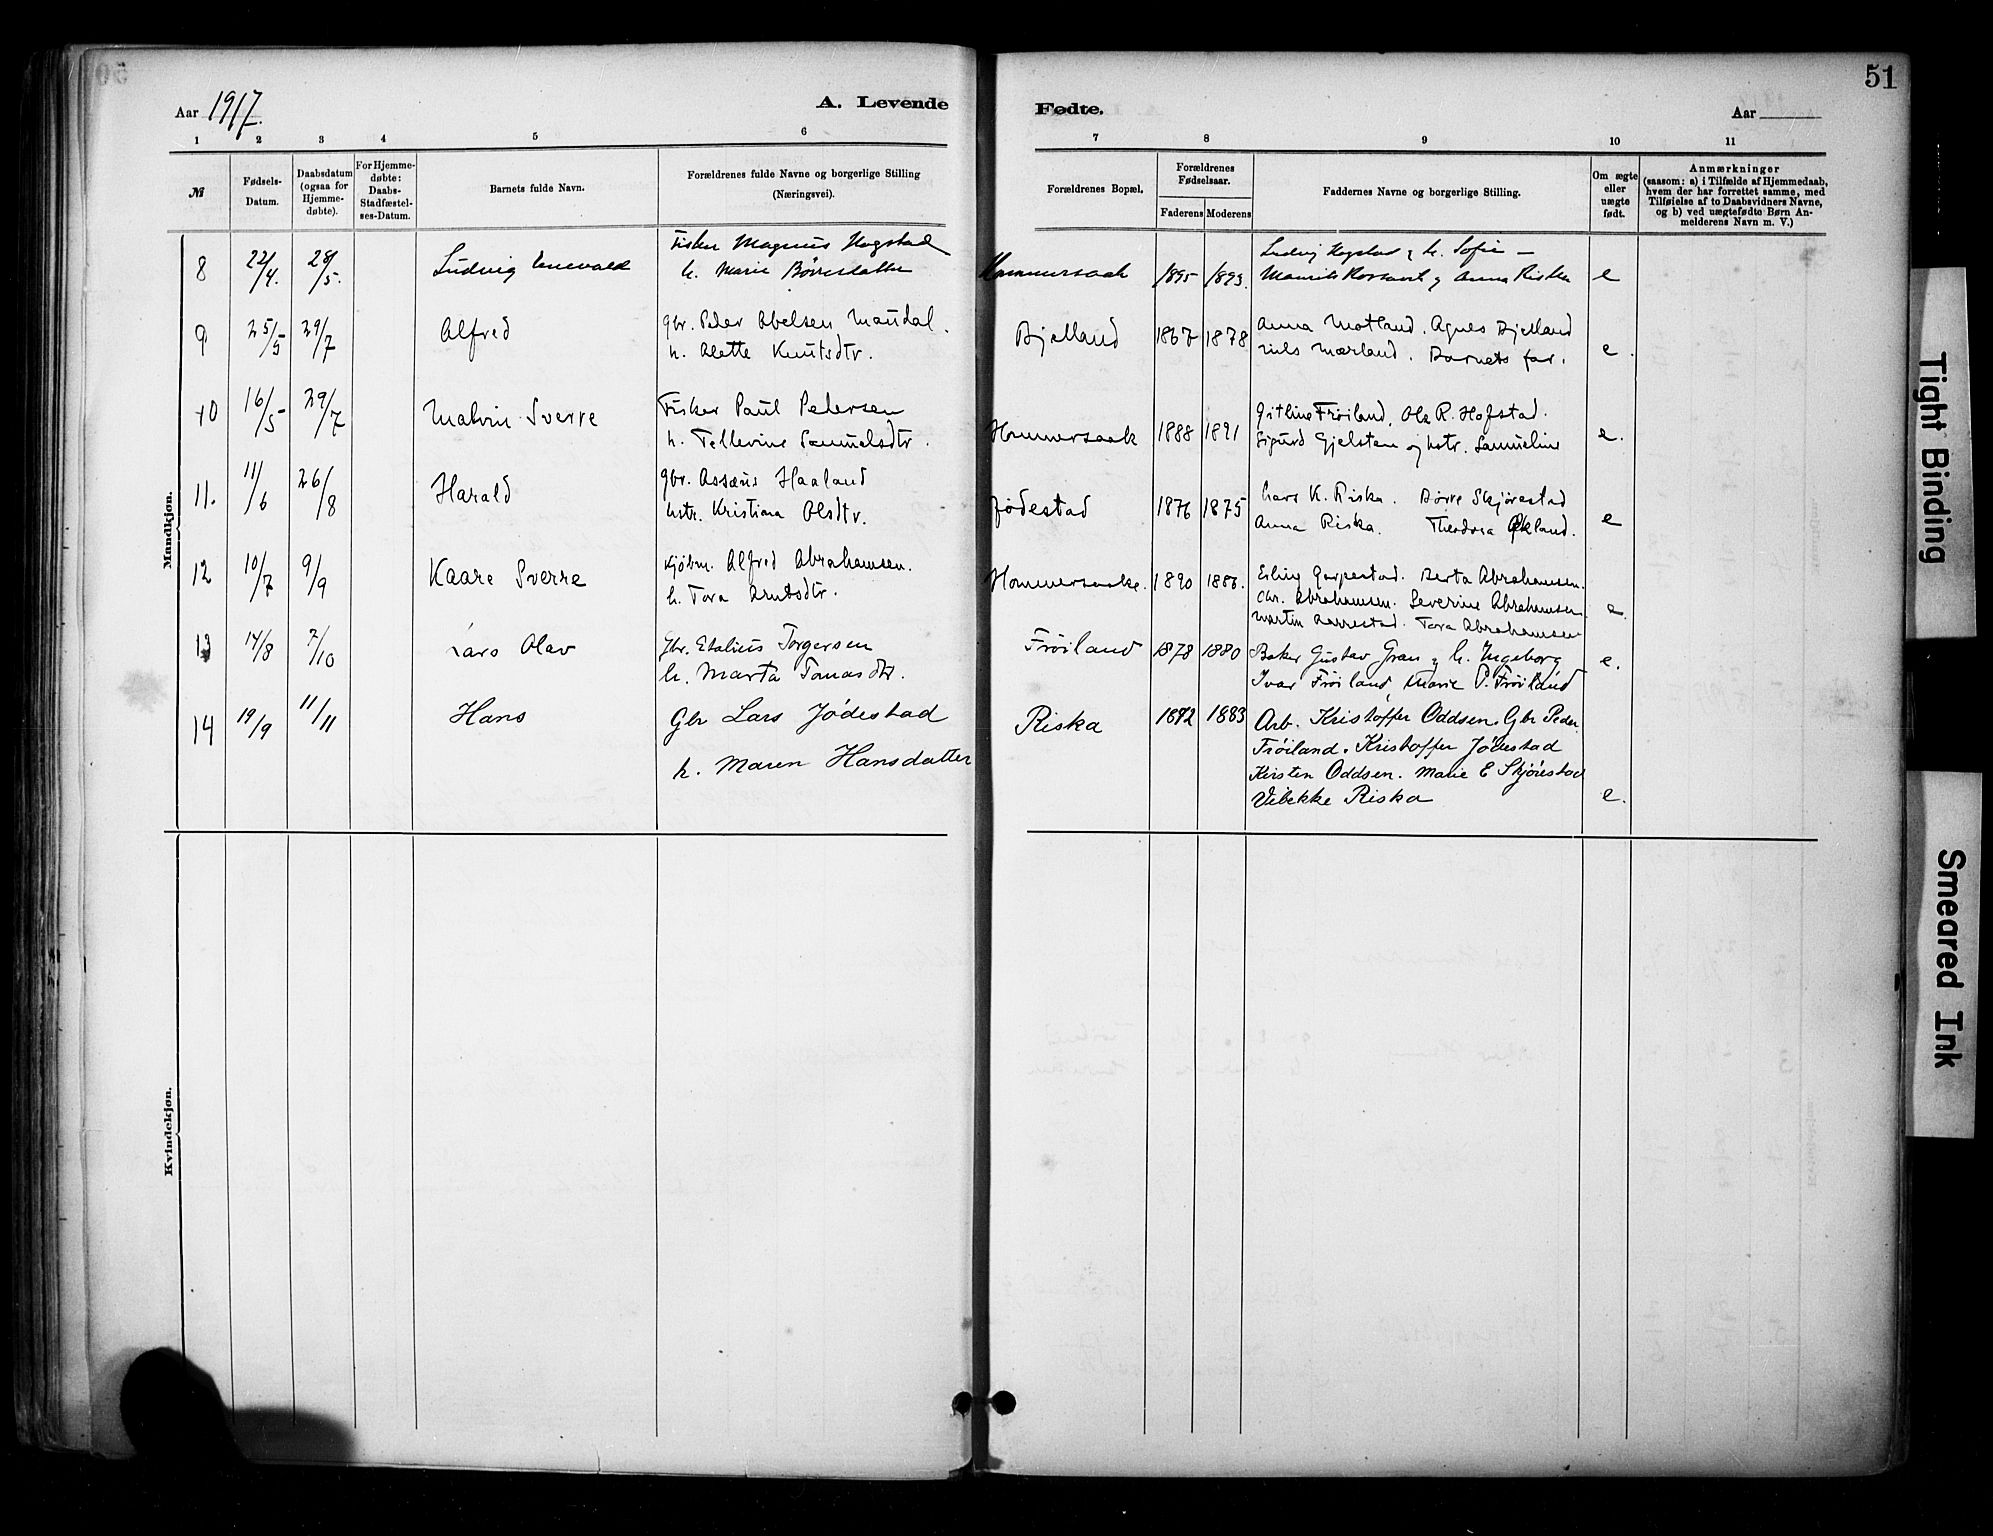 51
Aar 1917.
A. Levende
Fødte.
Aar
1 2 3 4 5 6 7 8 9 10 11
№
Fødsels-
Datum.
Daabsdatum
(ogsaa for
Hjemme-
døbte).
For Hjemme-
døbte:
Daabs-
Stadfæstel-
ses-Datum.
Barnets fulde Navn.
Forældrenes fulde Navne og borgerlige Stilling
(Næringsvei).
Forældrenes Bopæl.
Forældrenes
Fødselsaar.
Faderens Moderens
Faddernes Navne og borgerlige Stilling.
Om ægte
eller
uægte
født.
Anmærkninger
(saasom: a) i Tilfælde af Hjemmedaab,
hvem der har forrettet samme, med
Tilføielse af to Daabsvidners Navne,
og b) ved uægtefødte Børn An-
melderens Navn m. V.)
Mandkjøn.
8 22/4. 28/5. Ludvig Enevald
Fisker Magnus Hogstad
h. Marie Børresdatter
Hommersaak 1895 1893.
Ludvig Hogstad & h. Sofie —
& Anna Riska
e
9 25/5 29/7 Alfred
gbr. Peder Abelsen Maudal.
h. Alette Knutsdtr.
Bjelland 1867 1878
Anna Motland. Agnes Bjelland
Nils Mærland. Barnets far.
e.
10 16/5 29/7 Malvin Sverre
Fisker Paul Pedersen
h. Tellevine Samuelsdtr.
Hommersaak 1888 1891
Gitline Frøiland, Ole R. Hofstad.
Sigurd Gjelsten og hstr. Samueline
e.
11. 11/6 26/8 Harald
gbr. Assæus Haaland
hstr. Kristiana Olsdtr.
Jødestad 1876 1875
Lars K. Riska. Børre Skjørestad
Anna Riska. Theodora Økland.
e
12 10/7 9/9 Kaare Sverre
Kjøbm. Alfred Abrahamsen.
h. Tora Arntsdtr.
Hommersaake. 1890 1886.
Erling Garpestad. Berta Abrahamsen.
Chr. Abrahamsen. Severine Abrahamsen
Martin Aarrestad. Tora Abrahamsen
e.
13 14/8 7/10 Lars Olav
Gbr. Etalius Torgersen
h. Marta Tomasdtr.
Frøiland 1878 1880
Baker Gustav Gran & h. Ingeborg
Ivar Frøiland, Marie P. Frøiland
e.
14 19/9 11/11 Hans
Gbr Lars Jødestad
h. Maren Hansdatter
Riska 1883
Arb. Kristoffer Oddsen. Gbr Peder
Frøiland. Kristoffer Jødestad
Kirsten Oddsen. Marie E Skjørestad
Vibekke Riska
e.
Kvindekjøn.
Tight Binding
Smeared Ink